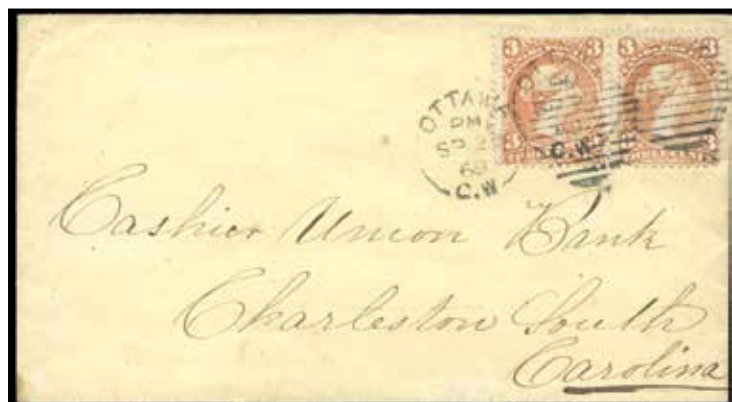 3 3 3 3
OTTAWA
PM
SP 2
68
C.W
C.W.
3 3 3
Cashier Union Bank
Charleston South
Carolina